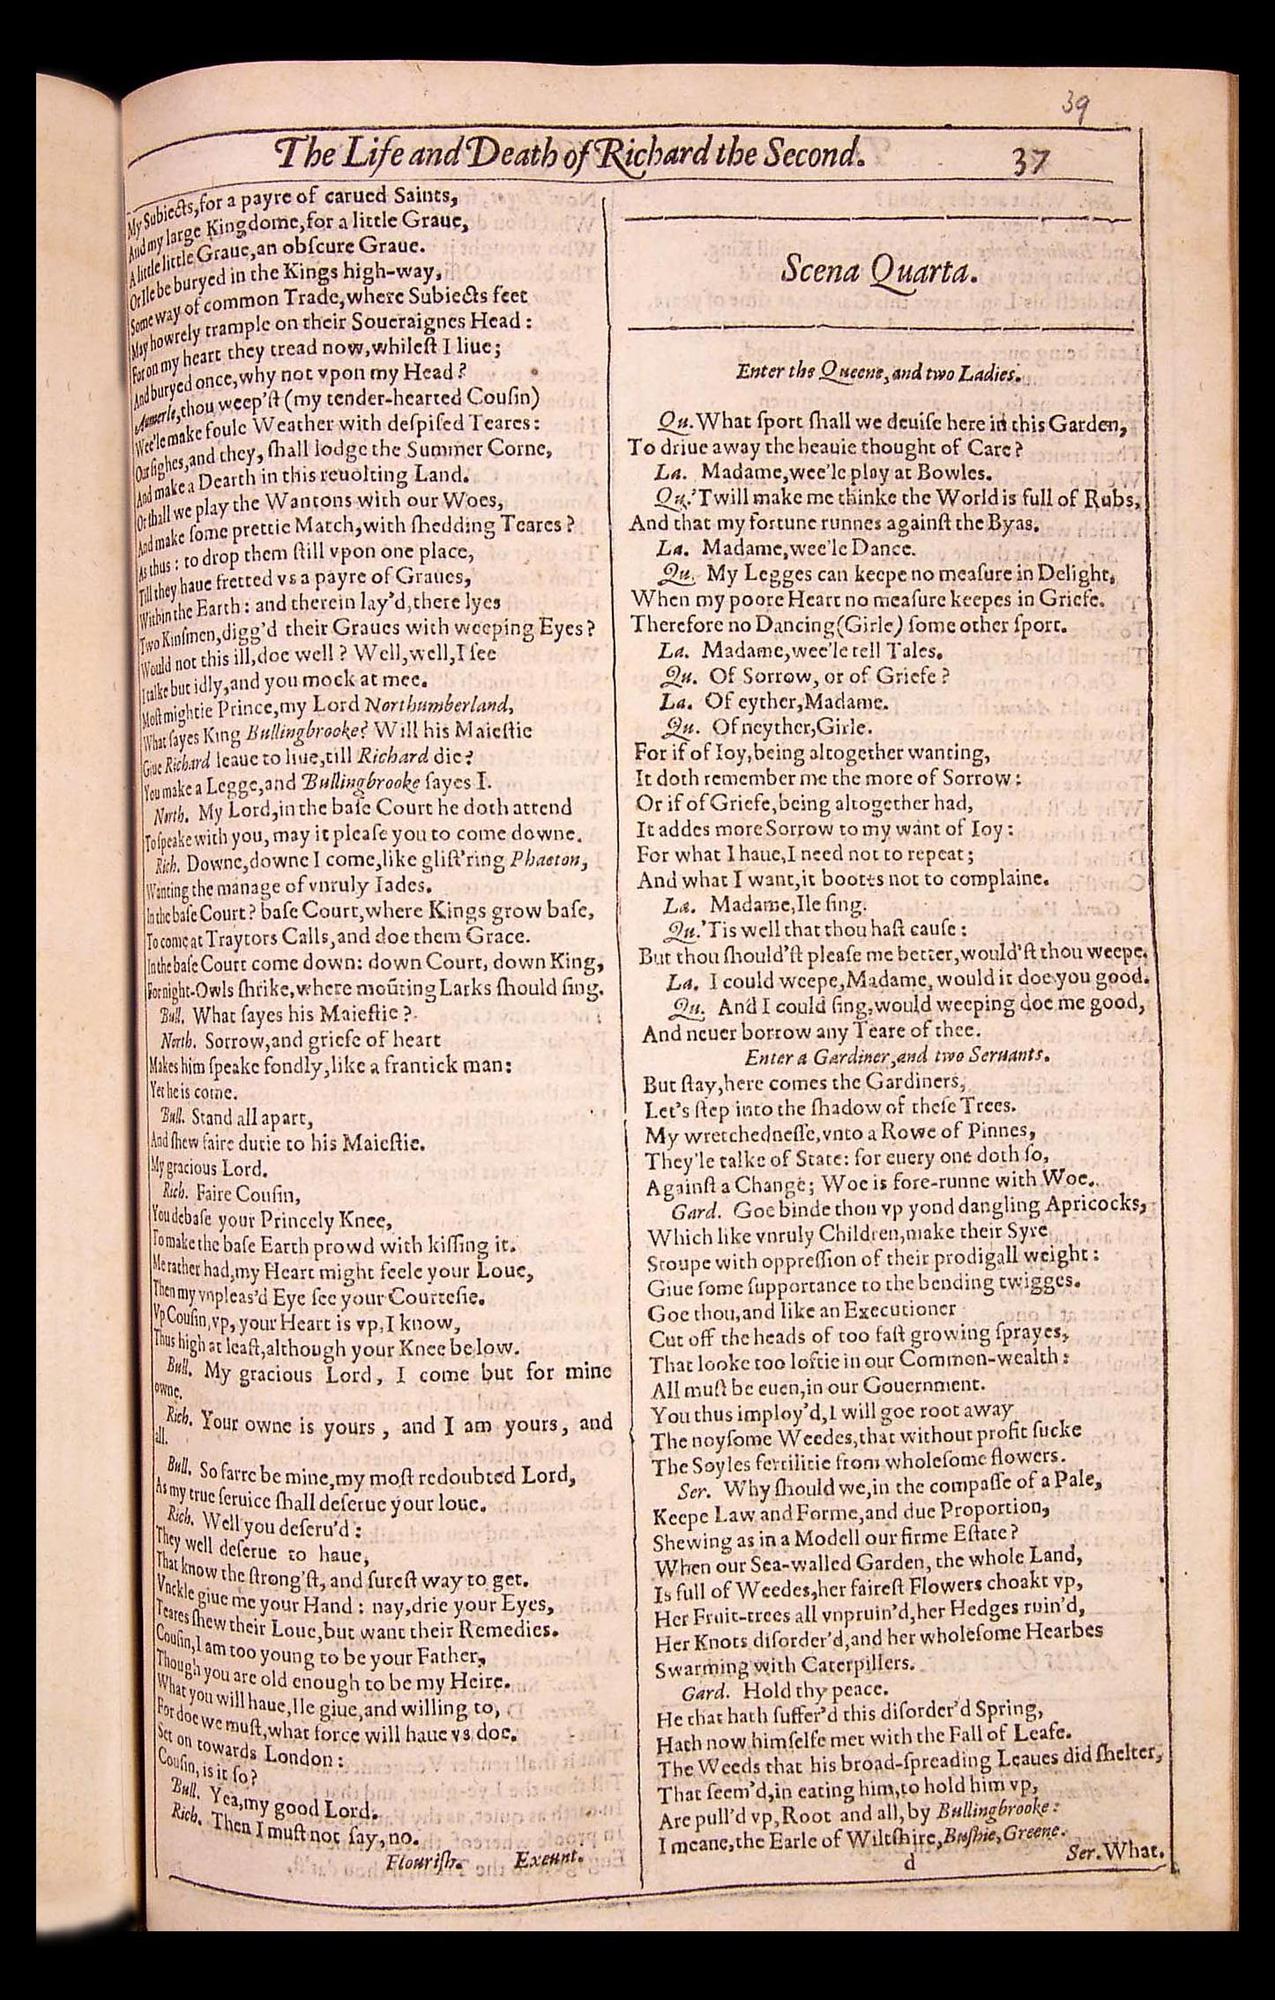 39
The Life and Death of Richard the Second. 37
My Subiects, for a payre of carued Saints,
And my large Kingdome, for a little Graue,
A little little Graue, an obſcure Graue.
Or Ile be buryed in the Kings high-way,
Some way of common Trade, where Subiects feet
May howrely trample on their Soueraignes Head:
For on my heart they tread now, whileſt I liue;
And buryed once, why not vpon my Head?
Aumerle, thou weep'ſt (my tender-hearted Couſin)
Wee'le make foule Weather with deſpiſed Teares:
Our ſighes, and they, ſhall lodge the Summer Corne,
And make a Dearth in this reuolting Land.
Or ſhall we play the Wantons with our Woes,
And make ſome prettie Match, with ſhedding Teares?
As thus: to drop them ſtill vpon one place,
Till they haue fretted vs a payre of Graues,
Within the Earth: and therein lay'd, there lyes
Two Kinſmen, digg'd their Graues with weeping Eyes?
Would not this ill, doe well? Well, well, I ſee
I talke but idly, and you mock at mee.
Moſt mightie Prince, my Lord Northumberland,
What ſayes King Bullingbrooke? Will his Maieſtie
Giue Richard leaue to liue, till Richard die?
You make a Legge, and Bullingbrooke ſayes I.
North. My Lord, in the baſe Court he doth attend
To ſpeake with you, may it pleaſe you to come downe.
Rich. Downe, downe I come, like gliſt'ring Phaeton,
Wanting the manage of vnruly Iades.
In the baſe Court? baſe Court, where Kings grow baſe,
To come at Traytors Calls, and doe them Grace.
In the baſe Court come down: down Court, down King,
For night-Owls ſhrike, where moūting Larks ſhould ſing.
Bull. What ſayes his Maieſtie?
North. Sorrow, and griefe of heart
Makes him ſpeake fondly, like a frantick man:
Yet he is come.
Bull. Stand all apart,
And ſhew faire dutie to his Maieſtie.
My gracious Lord.
Rich. Faire Couſin,
You debaſe your Princely Knee,
To make the baſe Earth prowd with kiſſing it.
Me rather had, my Heart might feele your Loue,
Then my vnpleas'd Eye ſee your Courteſie.
Vp Couſin, vp, your Heart is vp, I know,
Thus high at leaſt, although your Knee be low.
Bull. My gracious Lord, I come but for mine
owne.
Rich. Your owne is yours, and I am yours, and
all.
Bull. So farre be mine, my moſt redoubted Lord,
As my true ſeruice ſhall deſerue your loue.
Rich. Well you deſeru'd:
They well deſerue to haue,
That know the ſtrong'ſt, and ſureſt way to get.
Vnckle giue me your Hand: nay, drie your Eyes,
Teares ſhew their Loue, but want their Remedies.
Couſin, I am too young to be your Father,
Though you are old enough to be my Heire.
What you will haue, Ile giue, and willing to,
For doe we muſt, what force will haue vs doe.
Set on towards London:
Couſin, is it ſo?
Bull. Yea, my good Lord.
Rich. Then I muſt not ſay, no.
Flouriſh. Exeunt.
Scena Quarta.
Enter the Queene, and two Ladies.
Qu. What ſport ſhall we deuiſe here in this Garden,
To driue away the heauie thought of Care?
La. Madame, wee'le play at Bowles.
Qu. 'Twill make me thinke the World is full of Rubs,
And that my fortune runnes againſt the Byas.
La. Madame, wee'le Dance.
Qu. My Legges can keepe no meaſure in Delight,
When my poore Heart no meaſure keepes in Griefe.
Therefore no Dancing (Girle) ſome other ſport.
La. Madame, wee'le tell Tales.
Qu. Of Sorrow, or of Griefe?
La. Of eyther, Madame.
Qu. Of neyther, Girle.
For if of Ioy, being altogether wanting,
It doth remember me the more of Sorrow:
Or if of Griefe, being altogether had,
It addes more Sorrow to my want of Ioy:
For what I haue, I need not to repeat;
And what I want, it bootes not to complaine.
La. Madame, Ile ſing.
Qu. 'Tis well that thou haſt cauſe:
But thou ſhould'ſt pleaſe me better, would'ſt thou weepe.
La. I could weepe, Madame, would it doe you good.
Qu. And I could ſing, would weeping doe me good,
And neuer borrow any Teare of thee.
Enter a Gardiner, and two Seruants.
But ſtay, here comes the Gardiners,
Let's ſtep into the ſhadow of theſe Trees.
My wretchedneſſe, vnto a Rowe of Pinnes,
They'le talke of State: for euery one doth ſo,
Againſt a Change; Woe is fore-runne with Woe.
Gard. Goe binde thou vp yond dangling Apricocks,
Which like vnruly Children, make their Syre
Stoupe with oppreſſion of their prodigall weight:
Giue ſome ſupportance to the bending twigges.
Goe thou, and like an Executioner
Cut off the heads of too faſt growing ſprayes,
That looke too loftie in our Common-wealth:
All muſt be euen, in our Gouernment.
You thus imploy'd, I will goe root away
The noyſome Weedes, that without profit ſucke
The Soyles fertilitie from wholeſome flowers.
Ser. Why ſhould we, in the compaſſe of a Pale,
Keepe Law and Forme, and due Proportion,
Shewing as in a Modell our firme Eſtate?
When our Sea-walled Garden, the whole Land,
Is full of Weedes, her faireſt Flowers choakt vp,
Her Fruit-trees all vnpruin'd, her Hedges ruin'd,
Her Knots diſorder'd, and her wholeſome Hearbes
Swarming with Caterpillers.
Gard. Hold thy peace.
He that hath ſuffer'd this diſorder'd Spring,
Hath now himſelfe met with the Fall of Leafe.
The Weeds that his broad-ſpreading Leaues did ſhelter,
That ſeem'd, in eating him, to hold him vp,
Are pull'd vp, Root and all, by Bullingbrooke:
I meane, the Earle of Wiltſhire, Buſhie, Greene.
d Ser. What.